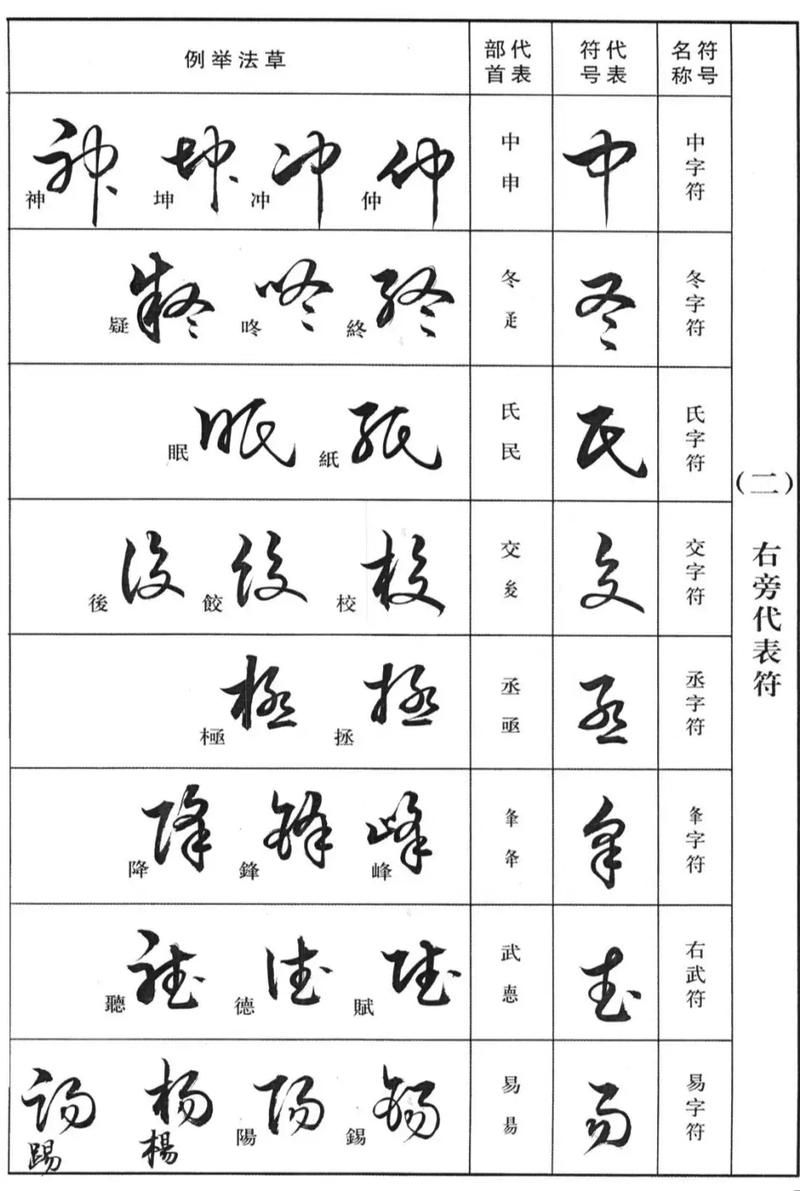 (二) 右旁代表符
符号名称
代表符号
代表部首
草法举例
中字符
中
中 申
仲 冲 坤 神
冬字符
冬
冬
終 咚 疑
氏字符
氏
氏 民
紙 眠
交字符
交
交
校 餃 後
丞字符
丞
丞 亟
拯 極
夆字符
夆
夆 夅
峰 鋒 降
右武符
武
武 悳
賦 德 聽
易字符
易
易 昜
錫 陽 楊 踢